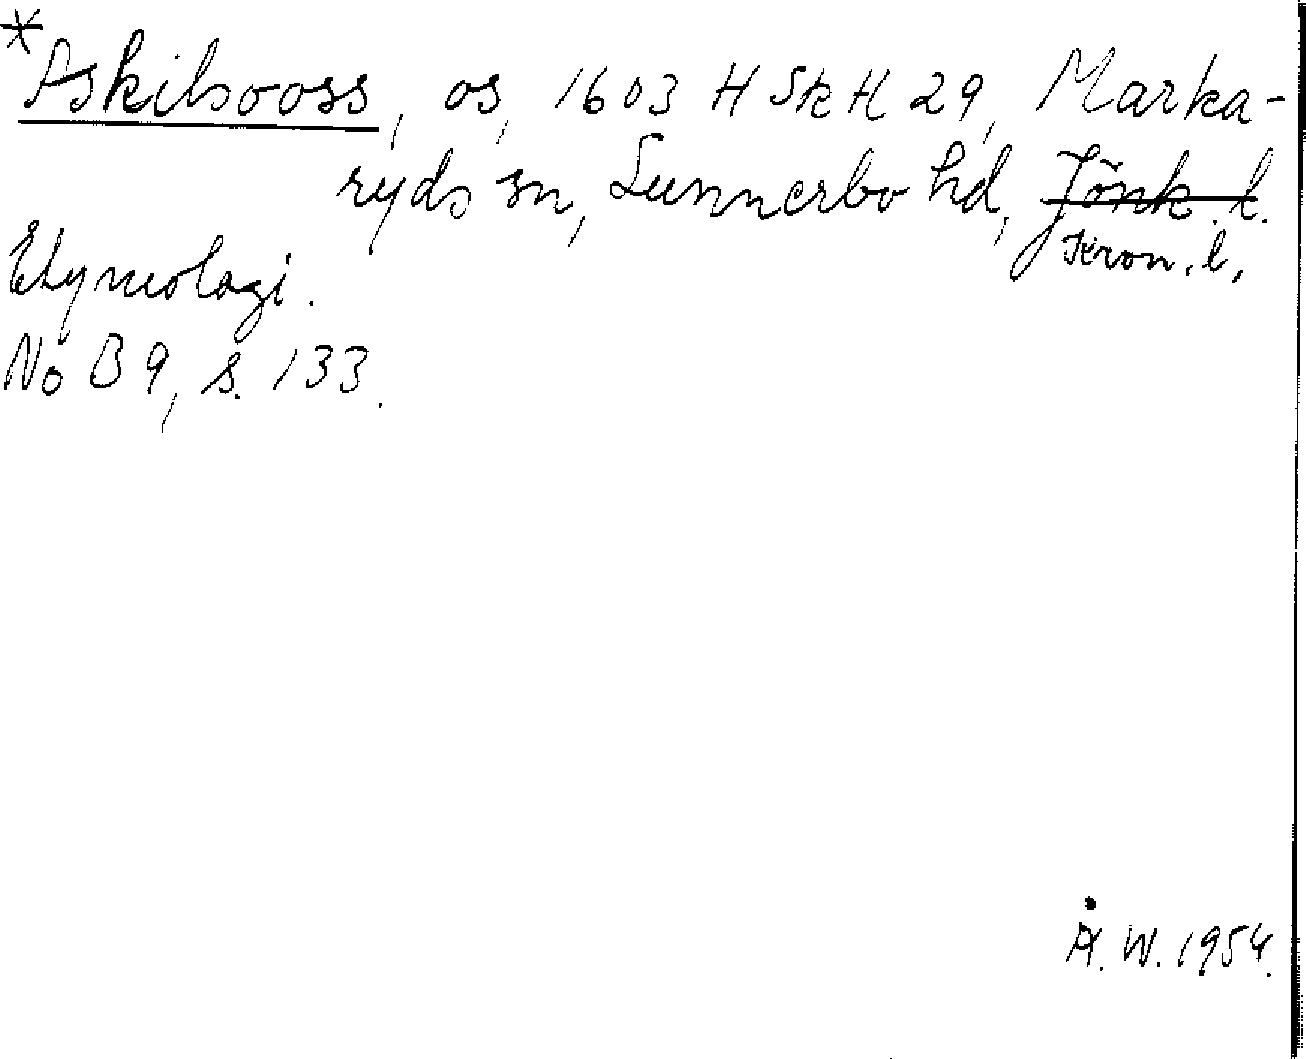 *Askilsooss, os, 1603 HSkH 29, Marka-
ryds sn, Sunnerbo hd, Jönk. l.
Kron. l,
Etymologi.
NoB 9, s. 133.
Å. W. 1954.